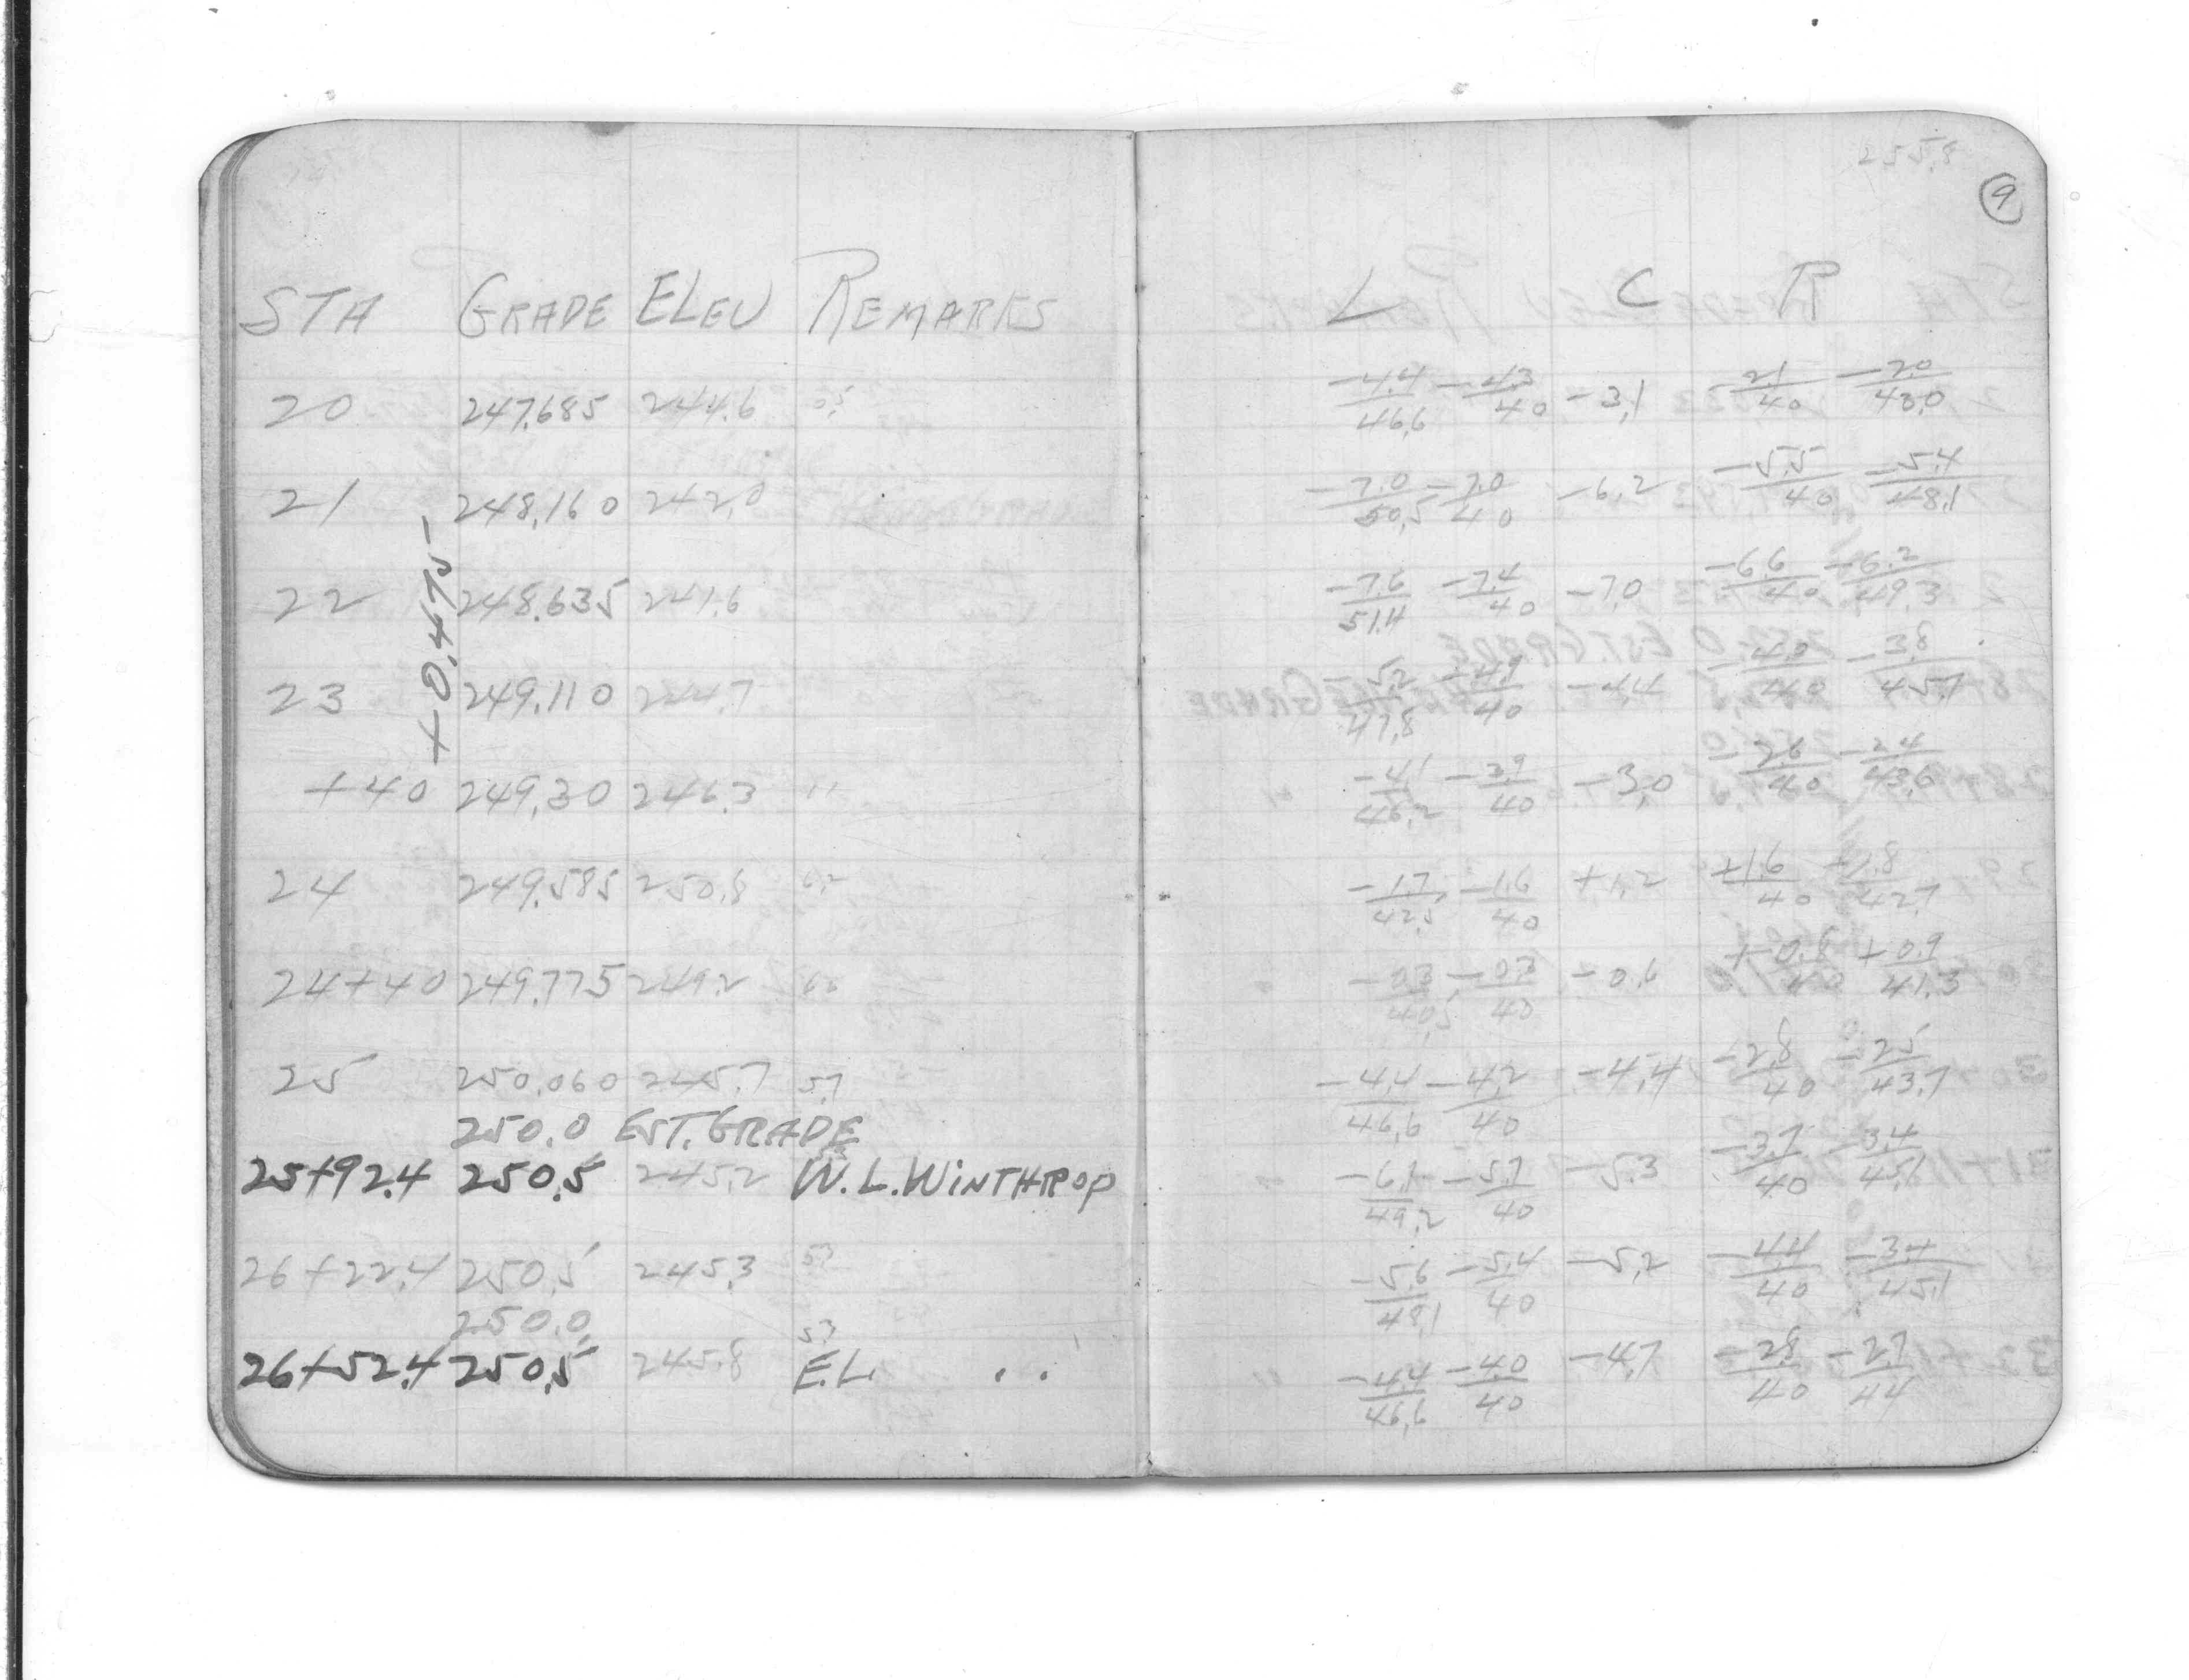 255.8
9
STA GRADE ELEV REMARKS
L C R
20 247.685 244.6
-4.4/46.6 -4.3/40 -3.1 -2.1/40 -2.0/43.0
21 248.160 242.0
-7.0/50.5 -7.0/40 -6.2 -5.5/40 -5.4/48.1
+0.475
22 248.635 241.6
-7.6/51.4 -7.4/40 -7.0 -6.6/40 -6.2/49.3
23 249.110 244.7
-5.2/47.8 -4.9/40 -4.4 -4.0/40 -3.8/45.7
+40 249.30 246.3
-4.1/46.2 -3.9/40 -3.0 -2.6/40 -2.4/43.6
24 249.585 250.8
-1.7/42.5 -1.6/40 +1.2 +1.6/40 +1.8/42.7
24+40 249.775 249.2
-0.3/40.5 -0.3/40 -0.6 +0.8/40 +0.9/41.3
25 250.060 245.7 5.7
-4.4/46.6 -4.2/40 -4.4 -2.8/40 -2.5/43.7
250.0 EST. GRADE
25+92.4 250.5 245.2 W.L. WINTHROP
-6.1/49.2 -5.7/40 -5.3 -3.7/40 -3.4/45.1
26+22.4 250.5 245.3 53
-5.6/48.1 -5.4/40 -5.2 -4.4/40 -3.4/45.1
250.0
26+52.4 250.5 245.8 E.L. " "
-4.4/46.6 -4.0/40 -4.7 -2.8/40 -2.7/44